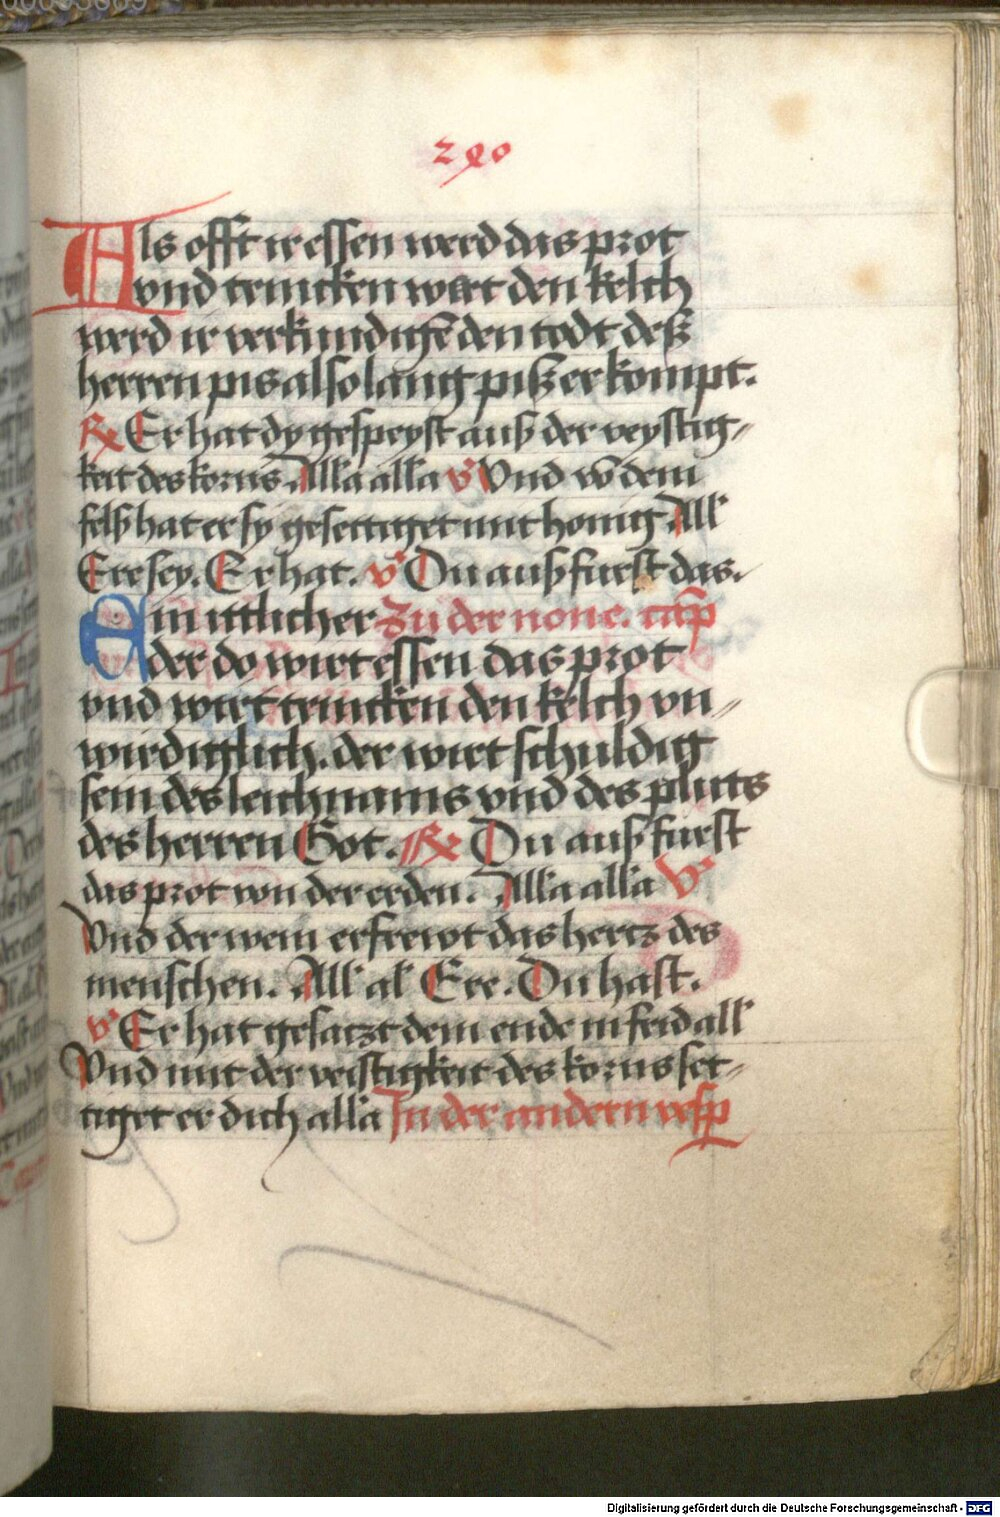 290
Als offt ir essen werd das prot
vnd trincken wert den kelch
werd ir verkundigē den todt deß
herren pis also lang piß er kompt.
℟ Er hat dy gespeyst auß der veystig-
keit des korns Alla alla v̓ Vnd vō dem
felß hat er sy gesettiget mit honig All
Ere sey. Er hat. v̓ Du außfurst das.
Ain ittlicher Zu der none. cap̄
der do wirt essen das prot
vnd wirt trincken den kelch vn-
wirdigklich. der wirt schuldig
sein des leichnams vnd des pluts
des herren Got. ℟ Du außfurst
das prot von der erden. Alla alla v̓
Vnd der wein erfrewt das hertz des
menschen. All al Ere. Du hast.
v̓ Er hat gesatzt dein ende in frid all
Vnd mit der veistigkeit des korns set-
tiget er dich alla In der andern vesp̄
Digitalisierung gefördert durch die Deutsche Forschungsgemeinschaft - DFG